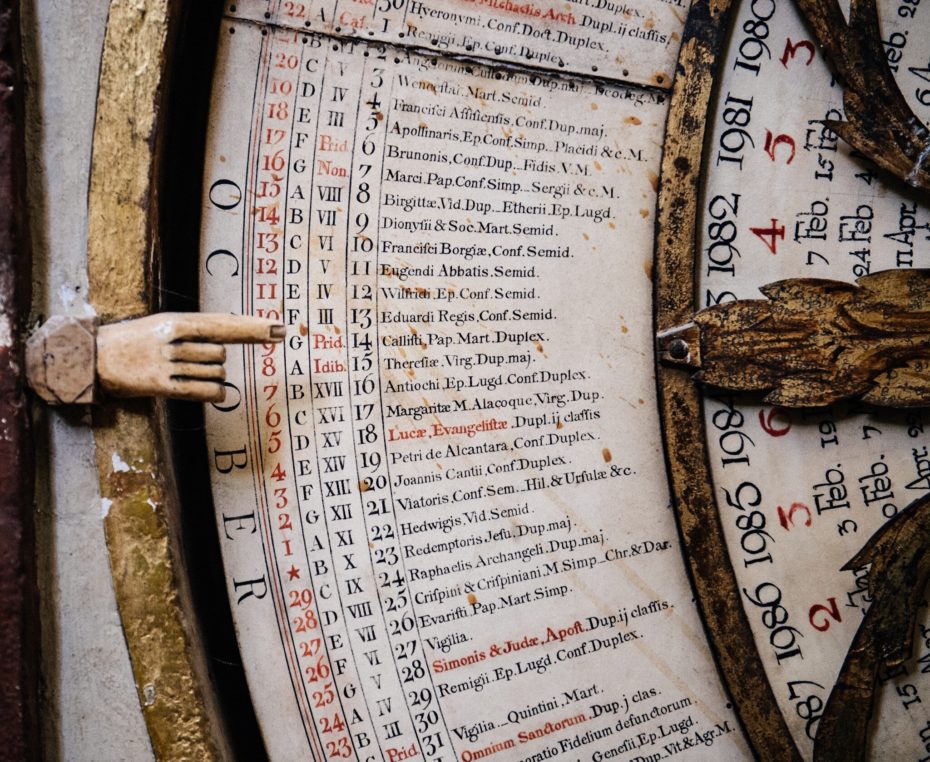 30 Hyeronymi. Conf. Doct. Duplex.
22 A Cal. 1 Remigii, Ep. Conf. Duplex.
21 B 2
20 C V 3 Wenceslai. Mart. Semid.
19 D IV 4 Francisci Assisiensis, Conf. Dup. maj.
18 E III 5 Apollinaris, Ep. Conf. Simp. Placidi & c. M.
17 F Prid. 6 Brunonis, Conf. Dup. Fidis V. M.
16 G Non. 7 Marci, Pap. Conf. Simp. Sergii & c. M.
15 A VIII 8 Birgittæ, Vid. Dup. Etherii, Ep. Lugd.
14 B VII 9 Dionysii & Soc. Mart. Semid.
13 C VI 10 Francisci Borgiæ, Conf. Semid.
12 D V 11 Eugendi Abbatis. Semid.
11 E IV 12 Wilfridi, Ep. Conf. Semid.
10 F III 13 Eduardi Regis, Conf. Semid.
9 G Prid. 14 Callisti, Pap. Mart. Duplex.
8 A Idib. 15 Theresiæ. Virg. Dup. maj.
7 B XVII 16 Antiochi, Ep. Lugd. Conf. Duplex.
6 C XVI 17 Margaritæ M. Alacoque, Virg. Dup.
5 D XV 18 Lucæ, Evangelistæ, Dupl. ij classis
4 E XIV 19 Petri de Alcantara, Conf. Duplex.
3 F XIII 20 Joannis Cantii, Conf. Duplex.
2 G XII 21 Viatoris, Conf. Sem. Hil. & Ursulæ & c.
1 A XI 22 Hedwigis, Vid. Semid.
★ B X 23 Redemptoris Jesu, Dup. maj.
29 C IX 24 Raphaelis Archangeli. Dup. maj.
28 D VIII 25 Crispini & Crispiniani. M. Simp. Chr. & Dar.
27 E VII 26 Evaristi. Pap. Mart. Simp.
26 F VI 27 Vigilia.
25 G V 28 Simonis & Judæ, Apost. Dup. ij classis.
24 A IV 29 Remigii, Ep. Lugd. Conf. Duplex.
23 B III 30
C Prid. 31 Vigilia. Quintini, Mart.
Omnium Sanctorum. Dup. j clas.
Fidelium defunctorum.
Genesii, Ep. Lugd.
Dup. Vit & Agr. M.
OCTOBER
1980 3
1981 5 15 Feb.
1982 4 7 Feb. 24 Feb. 11 Apr.
1984 6
1985 5 3 Feb.
1986 2